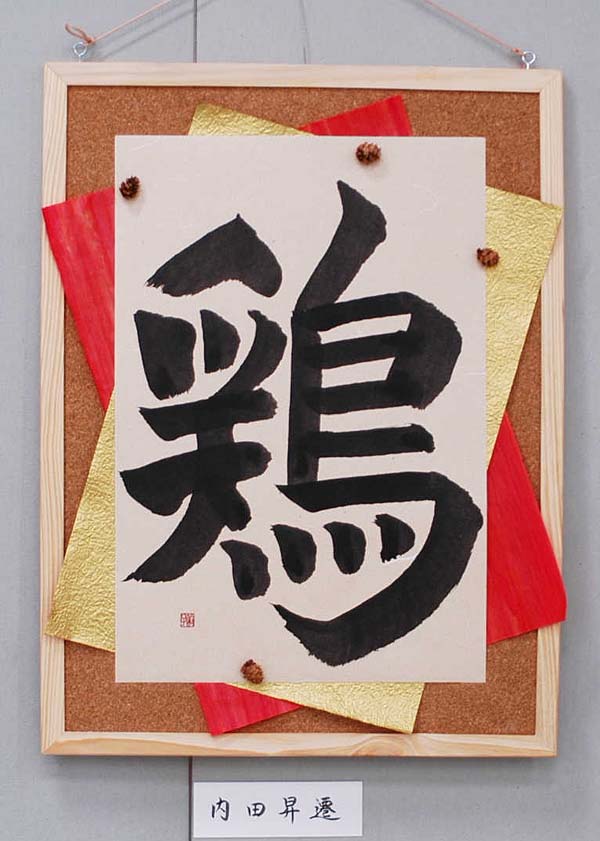 鶏
内田昇遷